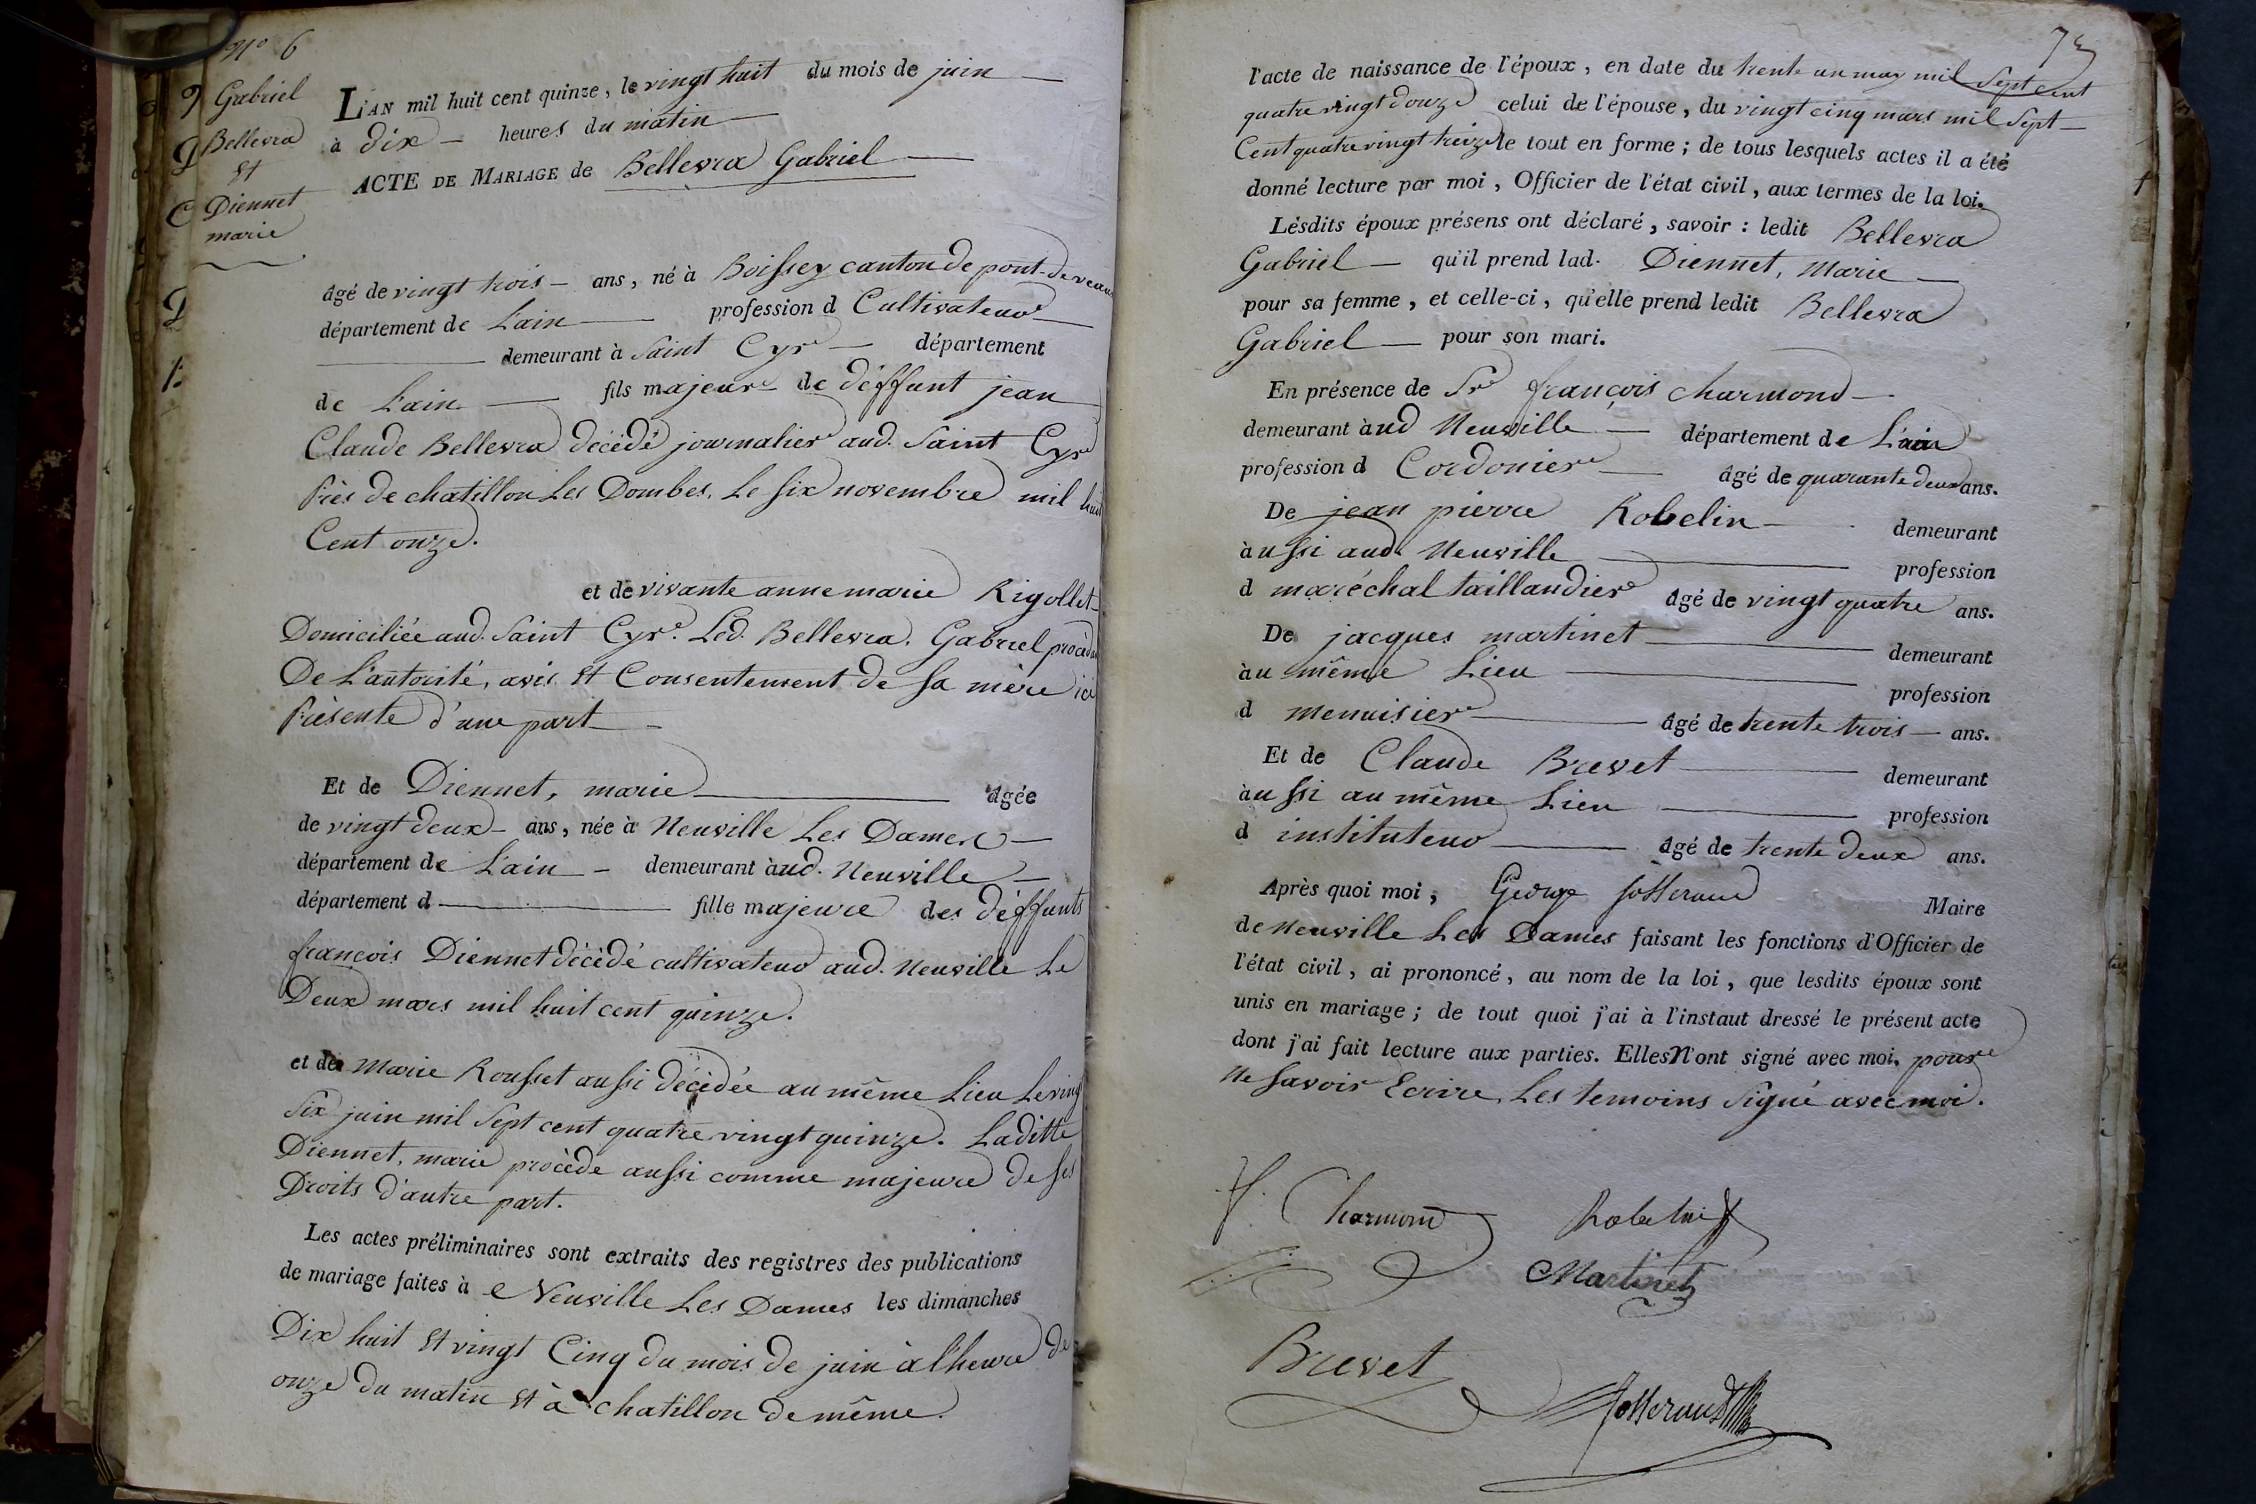 N° 6
Gabriel
Bellevra
et
Diennet
marie
L'AN mil huit cent quinze, le vingt huit du mois de juin
à dix heures du matin
ACTE DE MARIAGE de Bellevra Gabriel
âgé de vingt trois ans, né à Boissey canton de pont-de-veaux
département de L'ain profession d Cultivateur
demeurant à Saint Cyr département
de L'ain fils majeur de déffunt jean
Claude Bellevra décédé journalier aud. Saint Cyr
Près de chatillon Les Dombes, Le six novembre mil huit
Cent onze.
et de vivante anne marie Rigollet
Domiciliée aud. Saint Cyr. Led. Bellevra, Gabriel procédant
De L'autorité, avis et Consentement de sa mère ici
Présente d'une part
Et de Diennet, marie âgée
de vingt deux ans, née à Neuville Les Dames
département de L'ain demeurant àud. Neuville
département d fille majeure des déffunts
françois Diennet décédé cultivateur aud. Neuville Le
Deux mars mil huit cent quinze.
et de Marie Rousset aussi décédée au même Lieu Le vingt
Six juin mil sept cent quatre vingt quinze. Laditte
Diennet, marie procède aussi comme majeure de ses
Droits d'autre part.
Les actes préliminaires sont extraits des registres des publications
de mariage faites à Neuville Les Dames les dimanches
Dix huit et vingt Cinq du mois de juin à l'heure de
onze du matin et à chatillon de même.
l'acte de naissance de l'époux, en date du trente un may mil Sept cent
quatre vingt douze celui de l'épouse, du vingt cinq mars mil Sept
Cent quatre vingt treize le tout en forme; de tous lesquels actes il a été
donné lecture par moi, Officier de l'état civil, aux termes de la loi.
Lesdits époux présens ont déclaré, savoir: ledit Bellevra
Gabriel qu'il prend lad. Diennet, Marie
pour sa femme, et celle-ci, qu'elle prend ledit Bellevra
Gabriel pour son mari.
En présence de Sr françois charmond
demeurant àud Neuville département de L'ain
profession d Cordonier âgé de quarante deux ans.
De jean pierre Robelin demeurant
àussi aud. Neuville profession
d maréchal taillandier âgé de vingt quatre ans.
De jacques martinet demeurant
àu même Lieu profession
d menuisier âgé de trente trois ans.
Et de Claude Brevet demeurant
àussi au même Lieu profession
d instituteur âgé de trente deux ans.
Après quoi moi, George josserand Maire
de Neuville Les Dames faisant les fonctions d'Officier de
l'état civil, ai prononcé, au nom de la loi, que lesdits époux sont
unis en mariage; de tout quoi j'ai à l'instant dressé le présent acte
dont j'ai fait lecture aux parties. Elles N'ont signé avec moi, pour
Ne savoir Ecrire, Les temoins Signé avec moi.
f. Charmond Robelin
Martinet
Brevet
Josserand